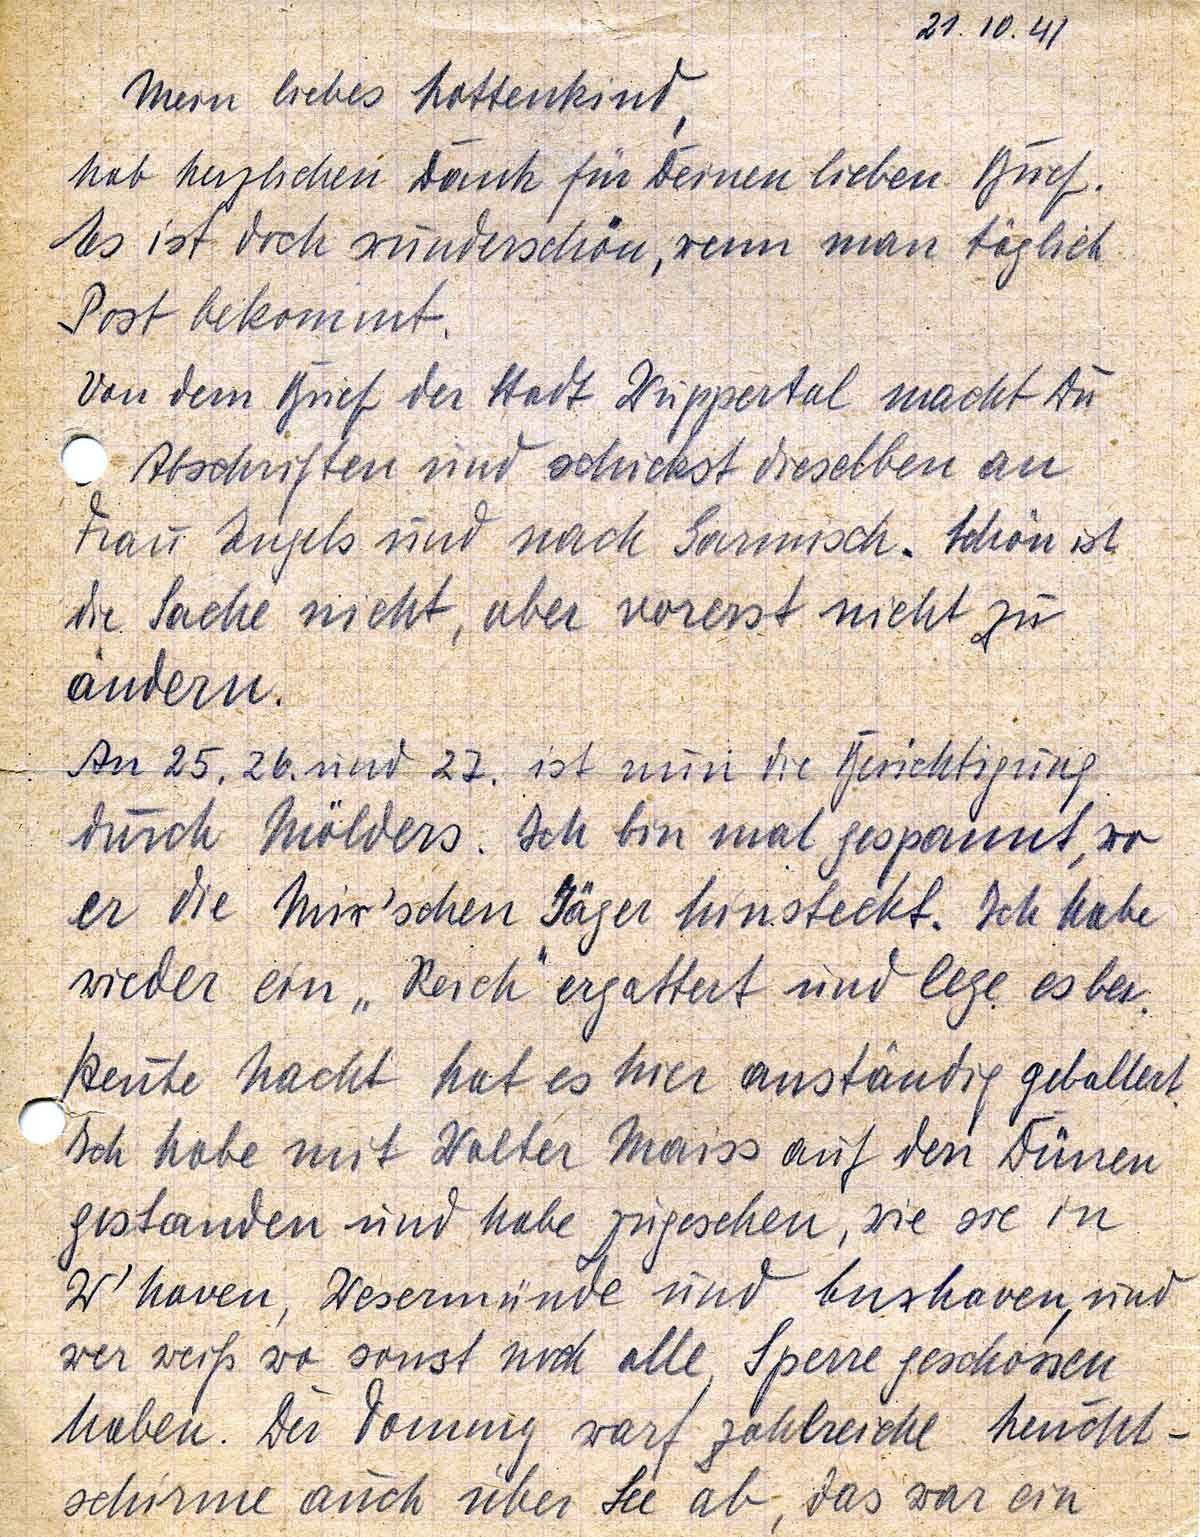 21.10.41
Mein liebes Lottenkind,
hab herzlichen Dank für Deinen lieben Brief.
Es ist doch wunderschön, wenn man täglich
Post bekommt.
Von dem Brief der Stadt Wuppertal macht Du
Abschriften und schickst dieselben an
Frau Engels und nach Garmisch. Schön ist
die Sache nicht, aber vorerst nicht zu
ändern.
An 25. 26. und 27. ist nun die Besichtigung
durch Mölders. Ich bin mal gespannt, wo
er die Mix'schen Jäger hinsteckt. Ich habe
wieder ein „Reich“ ergattert und lege es bei.
Heute Nacht hat es hier anständig geballert.
Ich habe mit Walter Maiss auf den Dünen
gestanden und habe zugesehen, wie sie in
W'haven, Wesermünde und Cuxhaven, und
wer weiß wo sonst noch alle, Sperre geschossen
haben. Der Tommy warf zahlreiche Leucht-
schirme auch über See ab, das war ein